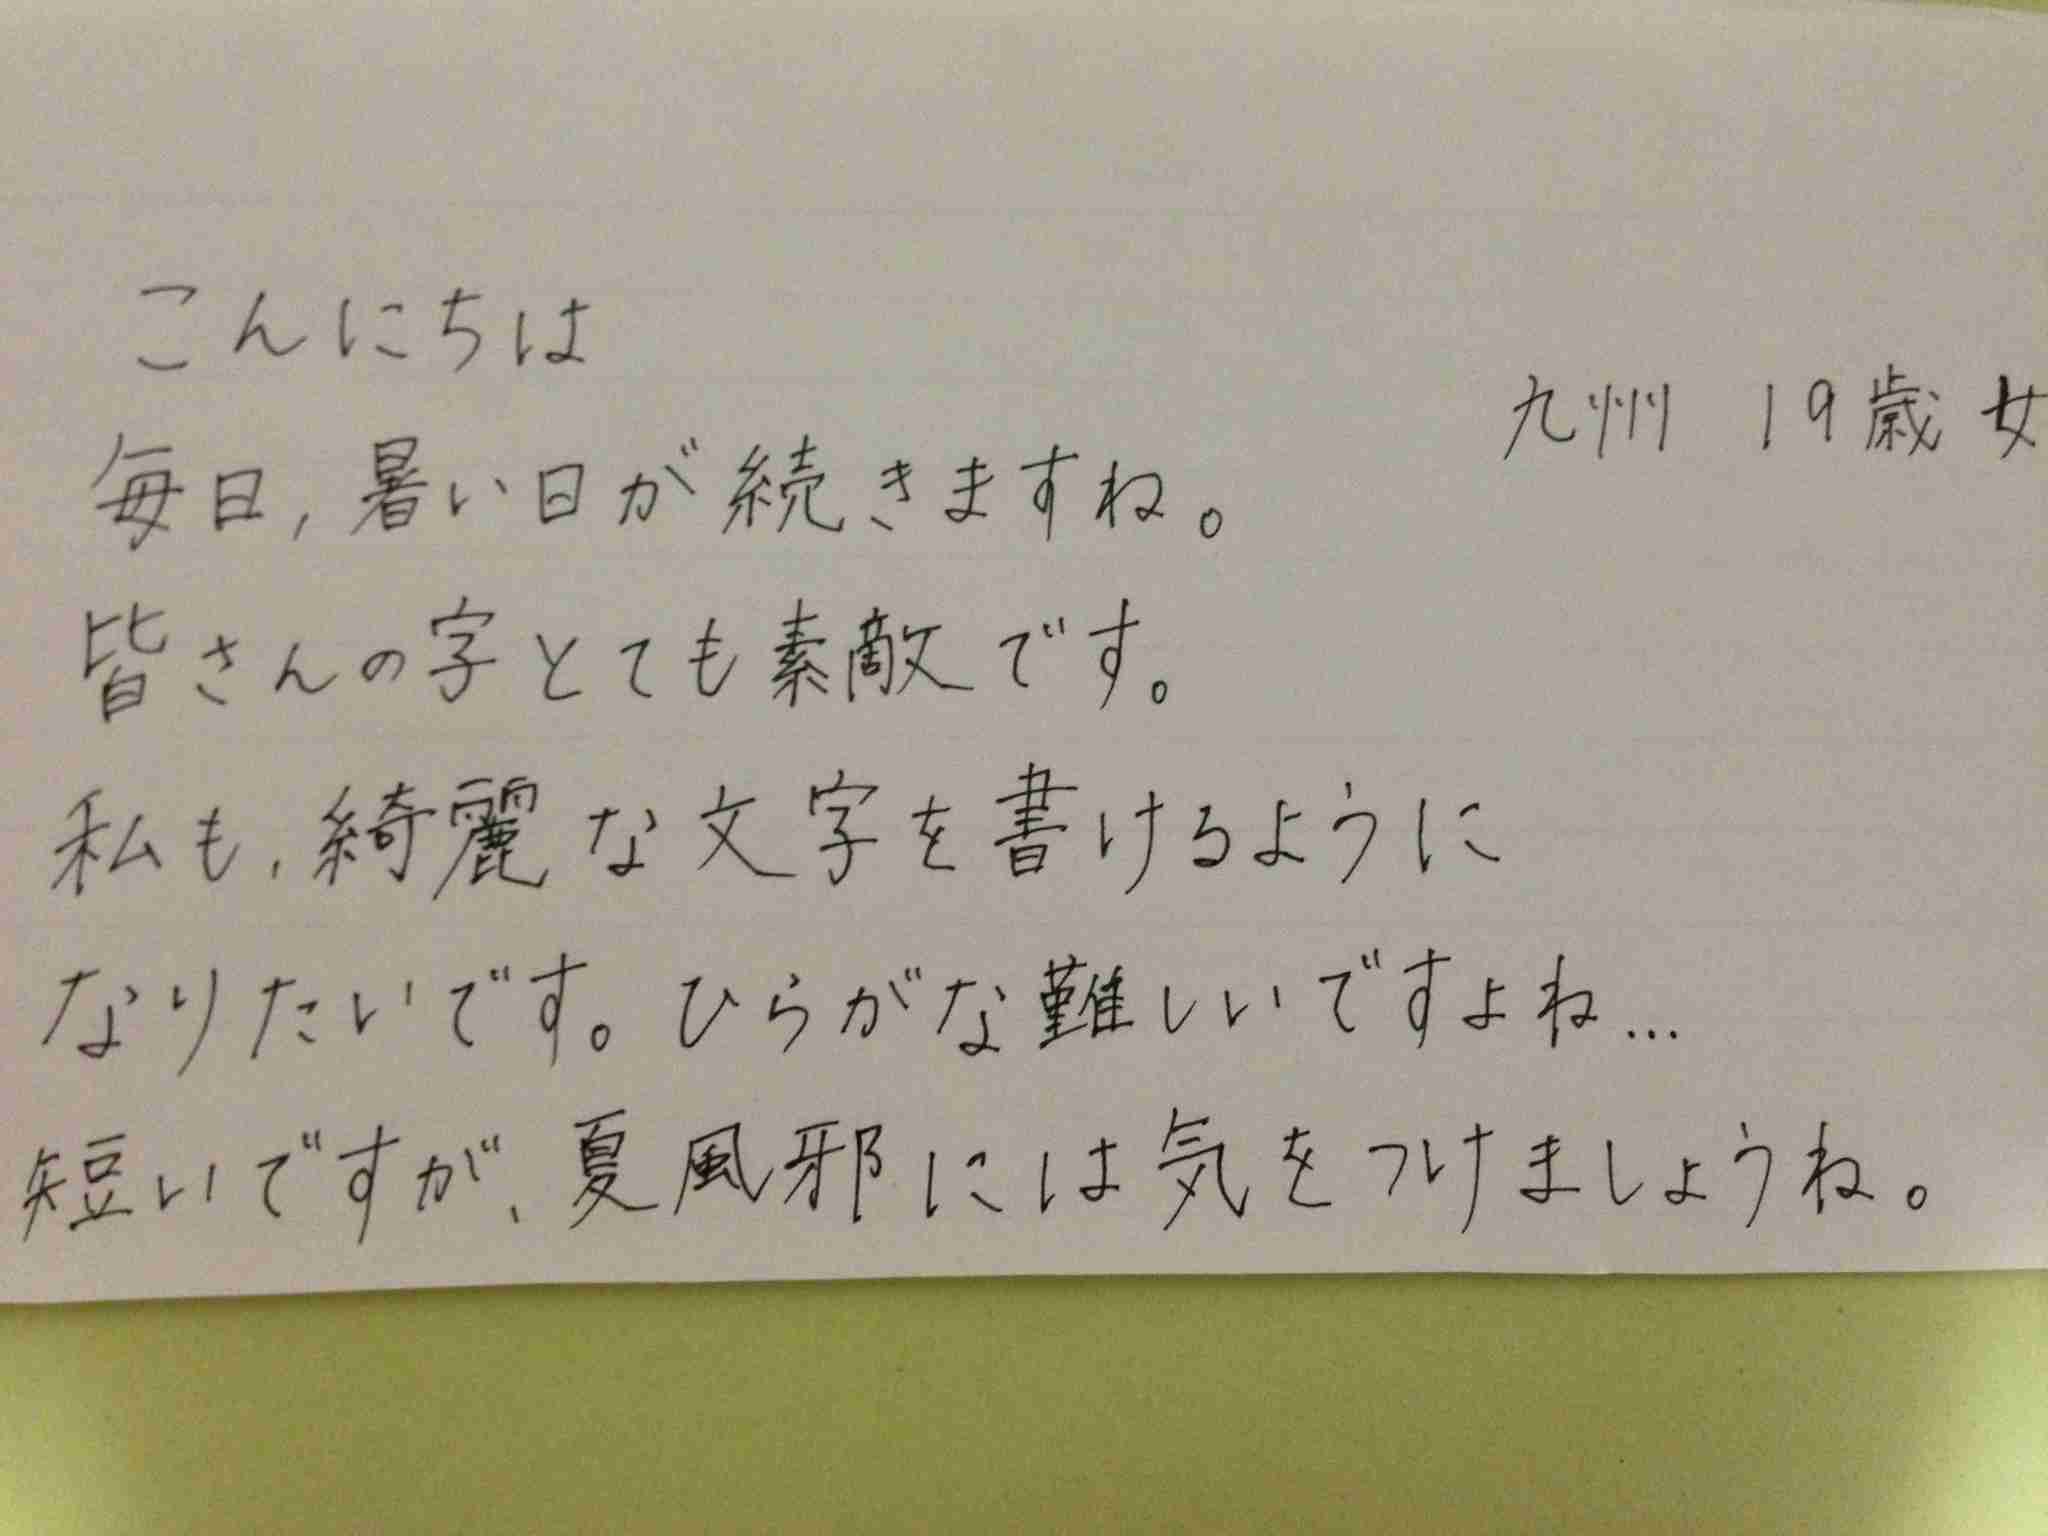 こんにちは
九州 19歳 女
毎日,暑い日が続きますね。
皆さんの字とても素敵です。
私も,綺麗な文字を書けるように
なりたいです。ひらがな難しいですよね…
短いですが、夏風邪には気をつけましょうね。